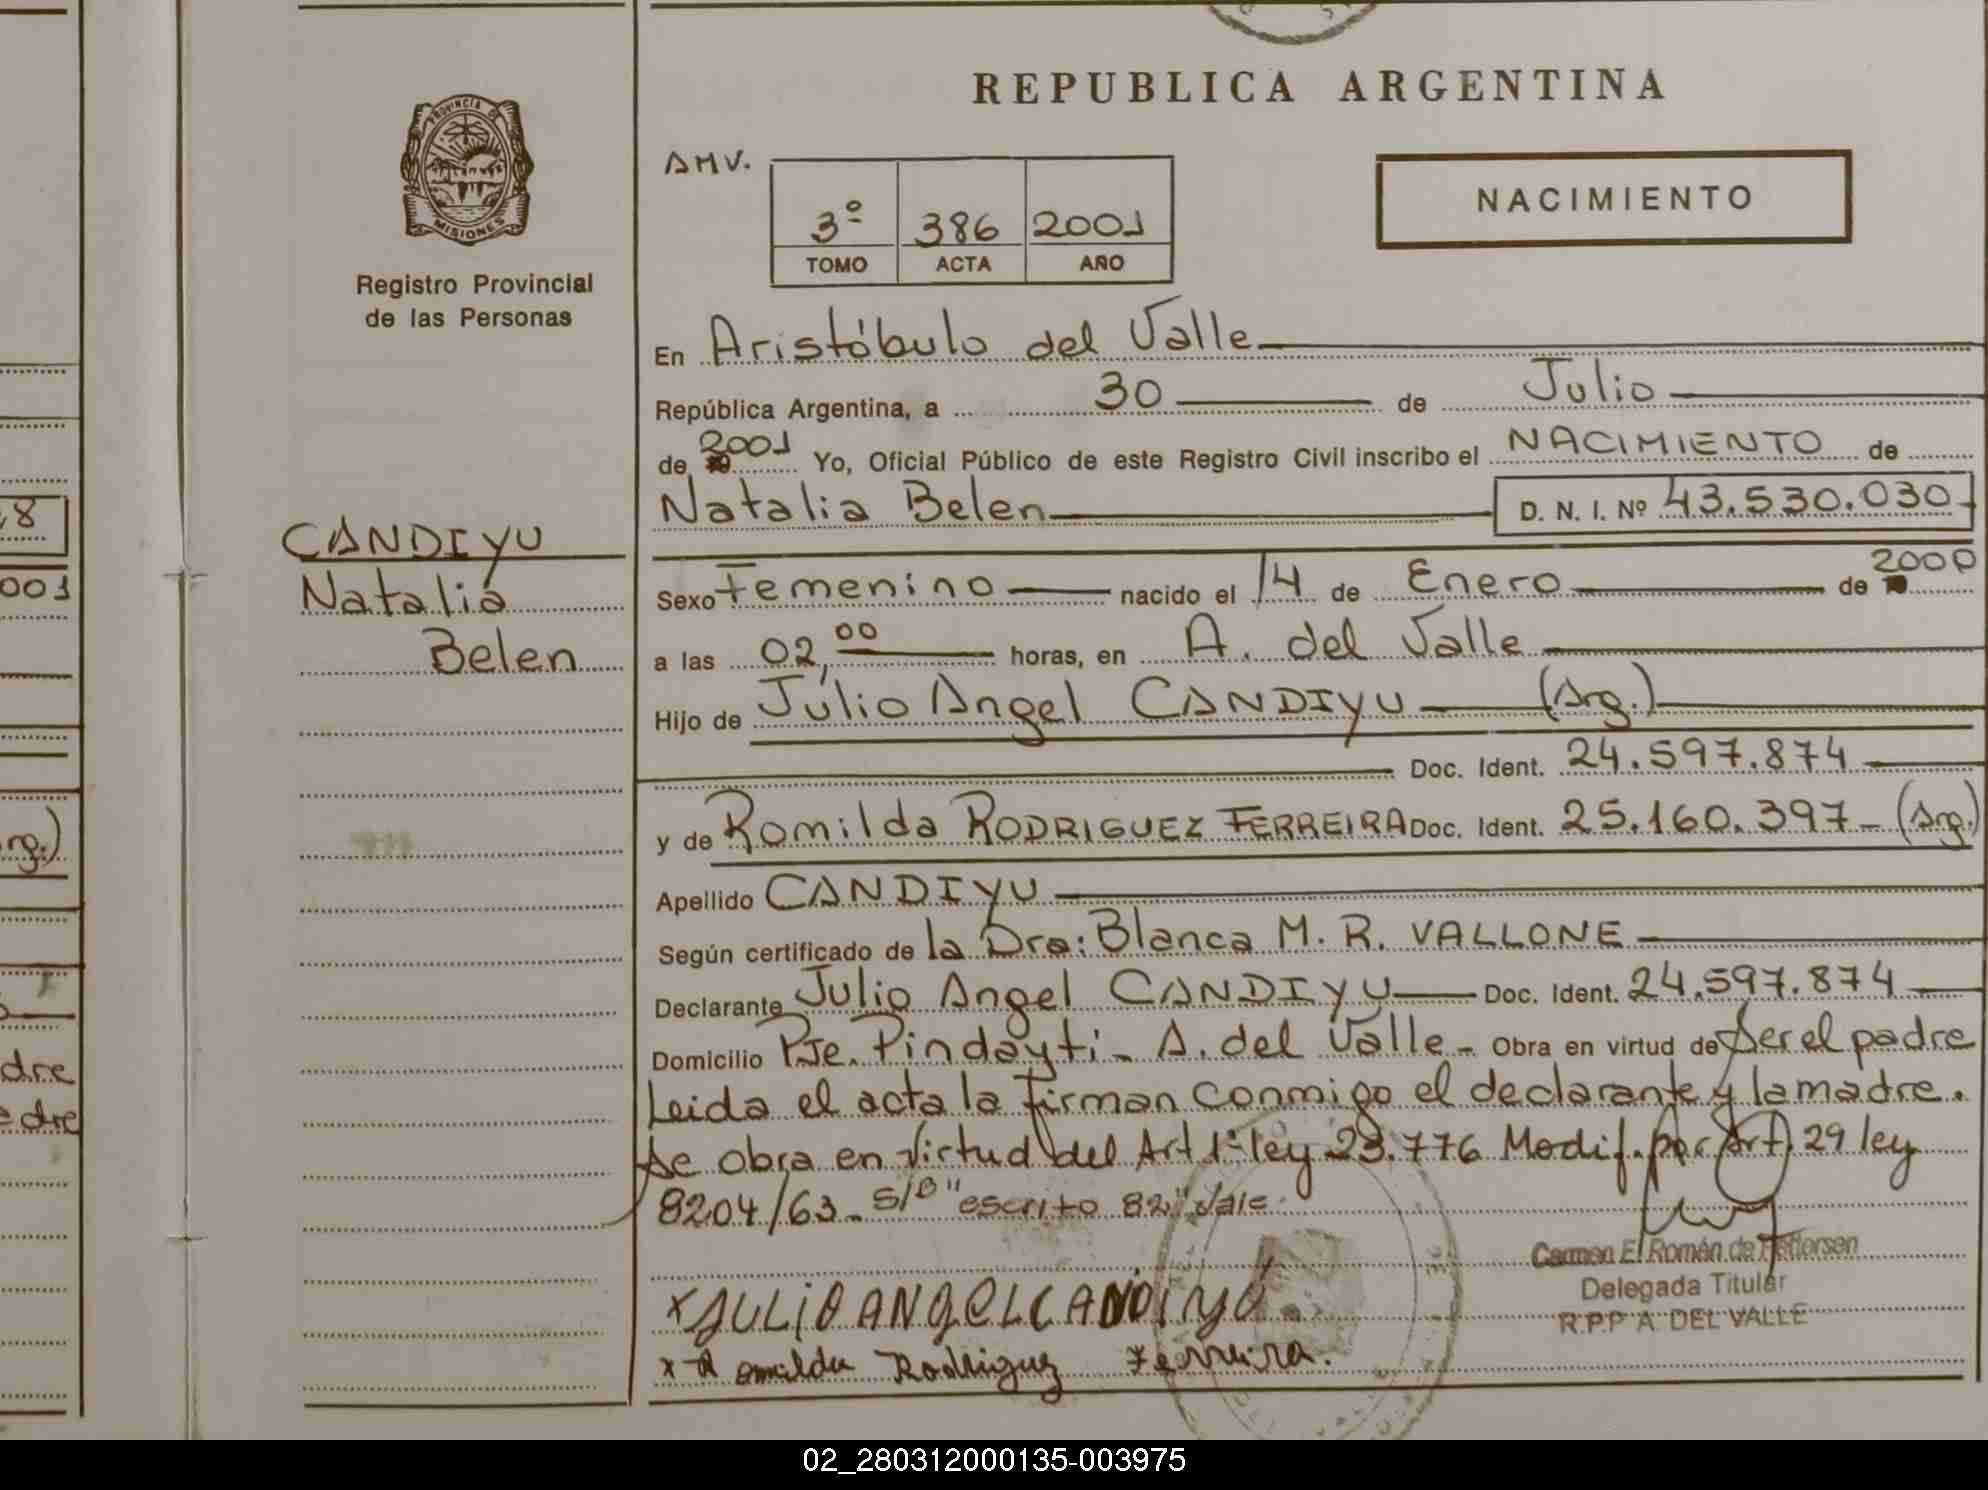 REPUBLICA ARGENTINA
PROVINCIA DE
MISIONES
Registro Provincial
de las Personas
AMV.
3º 386 2001
TOMO ACTA AÑO
NACIMIENTO
En Aristóbulo del Valle
República Argentina, a 30 de Julio
de 2001 Yo, Oficial Público de este Registro Civil inscribo el NACIMIENTO de
Natalia Belen D. N. I. Nº 43.530.030
CANDIYU
Natalia
Belen
Sexo Femenino nacido el 14 de Enero de 2000
a las 02,00 horas, en A. del Valle
Hijo de Julio Angel CANDIYU (Arg.)
Doc. Ident. 24.597.874
y de Romilda RODRIGUEZ FERREIRA Doc. Ident. 25.160.397 - (Arg.)
Apellido CANDIYU
Según certificado de la Dra: Blanca M. R. VALLONE
Declarante Julio Angel CANDIYU Doc. Ident. 24.597.874
Domicilio Pje. Pindayti - A. del Valle - Obra en virtud de ser el padre
Leida el acta la firman conmigo el declarante y la madre.
Se obra en virtud del Art 1º ley 23.776 Modif. por Art. 29 ley
8204/63 - S/B "escrito 82" Vale
Carmen E. Román de
Delegada Titular
R.P.P A. DEL VALLE
x JULIO ANGEL CANDIYU
x Romilda Rodriguez Ferreira.
8
001
rg.)
dre
dre
02_280312000135-003975